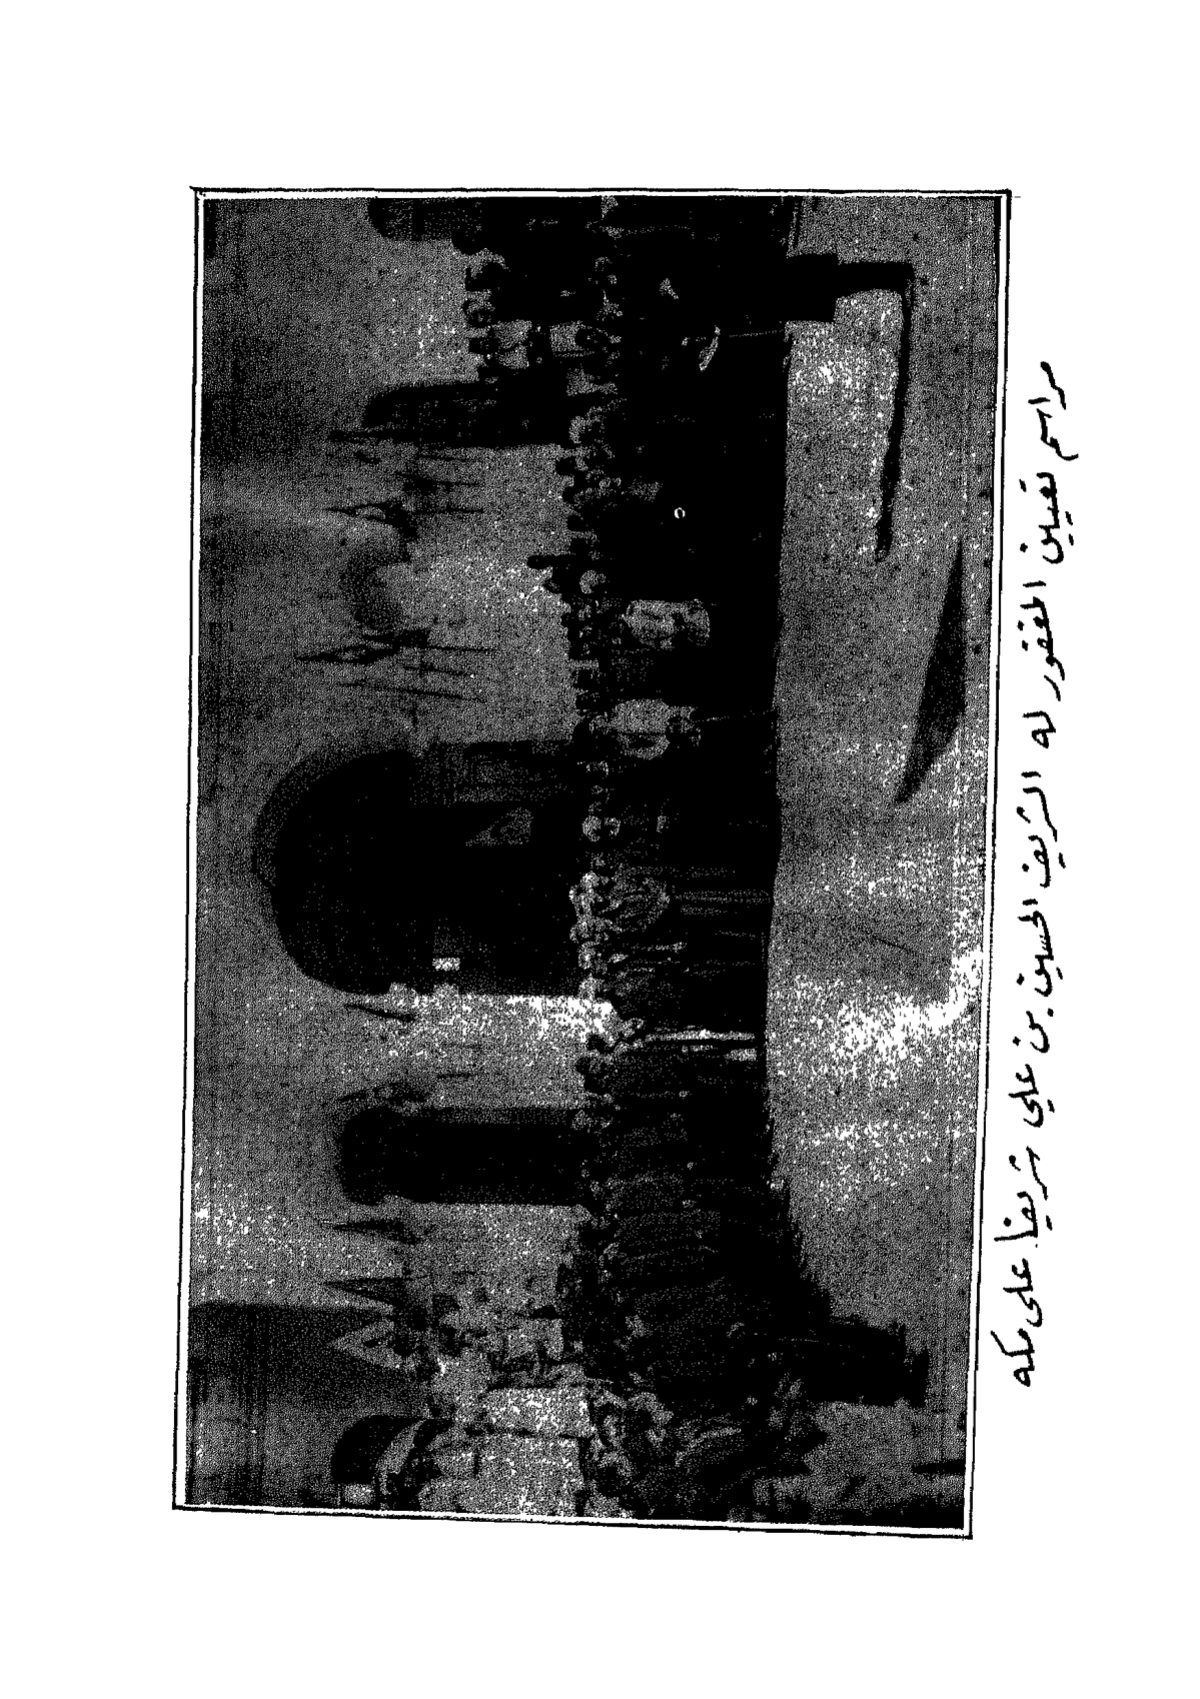 مراسم تعيين المغفور له الشريف الحسين بن علي شريفاً على مكه